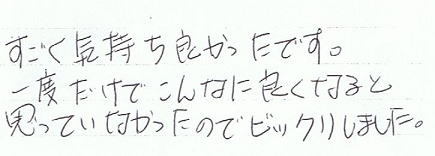 すごく気持ち良かったです。
一度だけでこんなに良くなると
思っていなかったのでビックリしました。